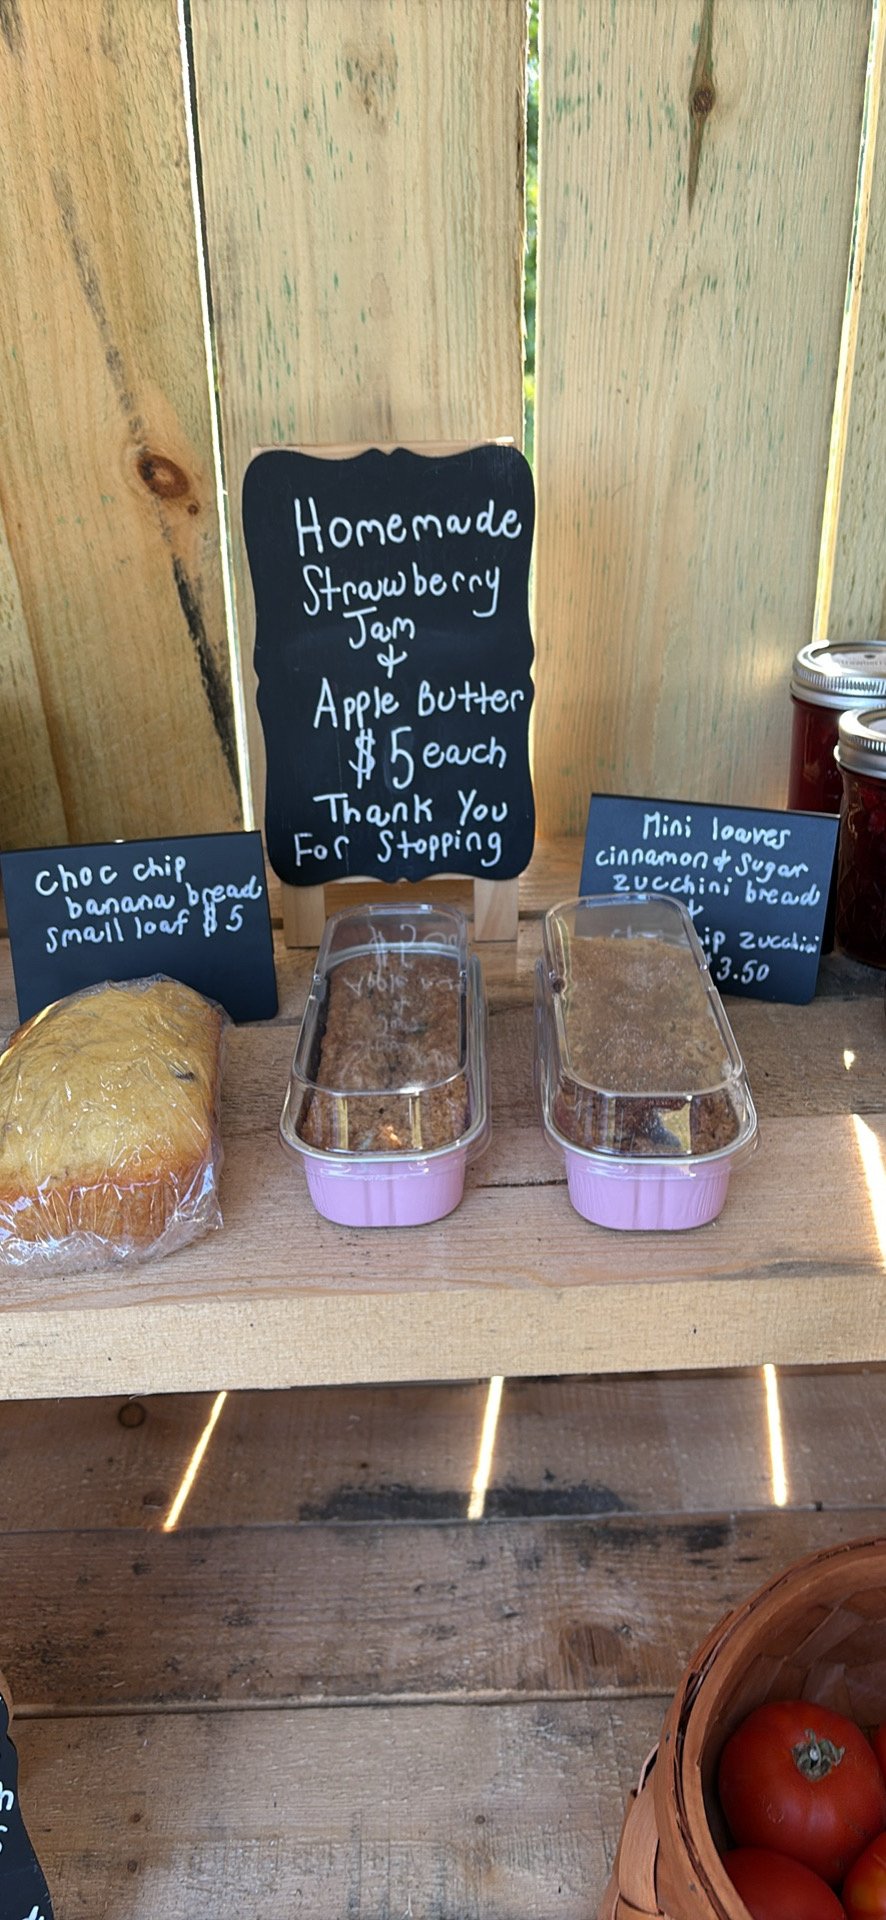 Homemade
Strawberry
Jam
&
Apple Butter
$5 each
Thank You
For Stopping
Choc chip
banana bread
small loaf $5
Mini loaves
cinnamon & sugar
zucchini bread
&
chip zucchini
$3.50